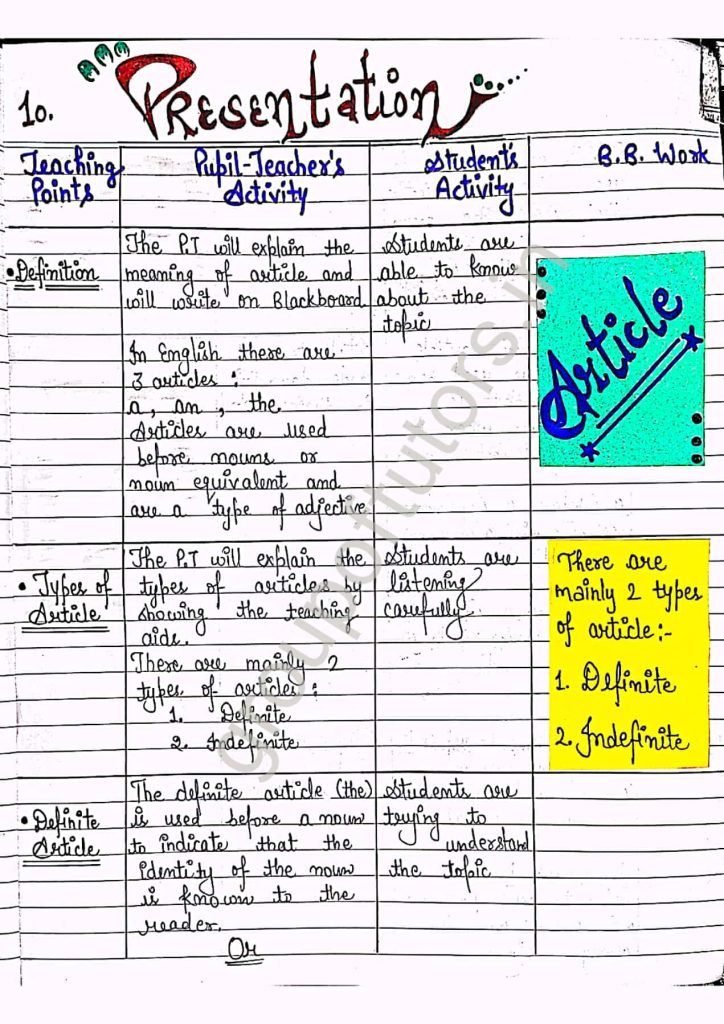 10. PRESENTATION
Teaching Points
Pupil-Teacher's Activity
Student's Activity
B.B. Work
• Definition
The P.T will explain the
meaning of article and
will write on Blackboard
In English there are
3 articles :
a, an, the
Articles are used
before nouns or
noun equivalent and
are a type of adjective
Students are
able to know
about the
topic
Article
• Types of
Article
The P.T will explain the
types of articles by
showing the teaching
aids.
There are mainly 2
types of articles :
1. Definite
2. Indefinite
Students are
listening
carefully.
There are
mainly 2 types
of article:-
1. Definite
2. Indefinite
• Definite
Article
The definite article (the)
is used before a noun
to indicate that the
identity of the noun
is known to the
reader.
Or
Students are
trying to
understand
the topic
groupoftutors.in